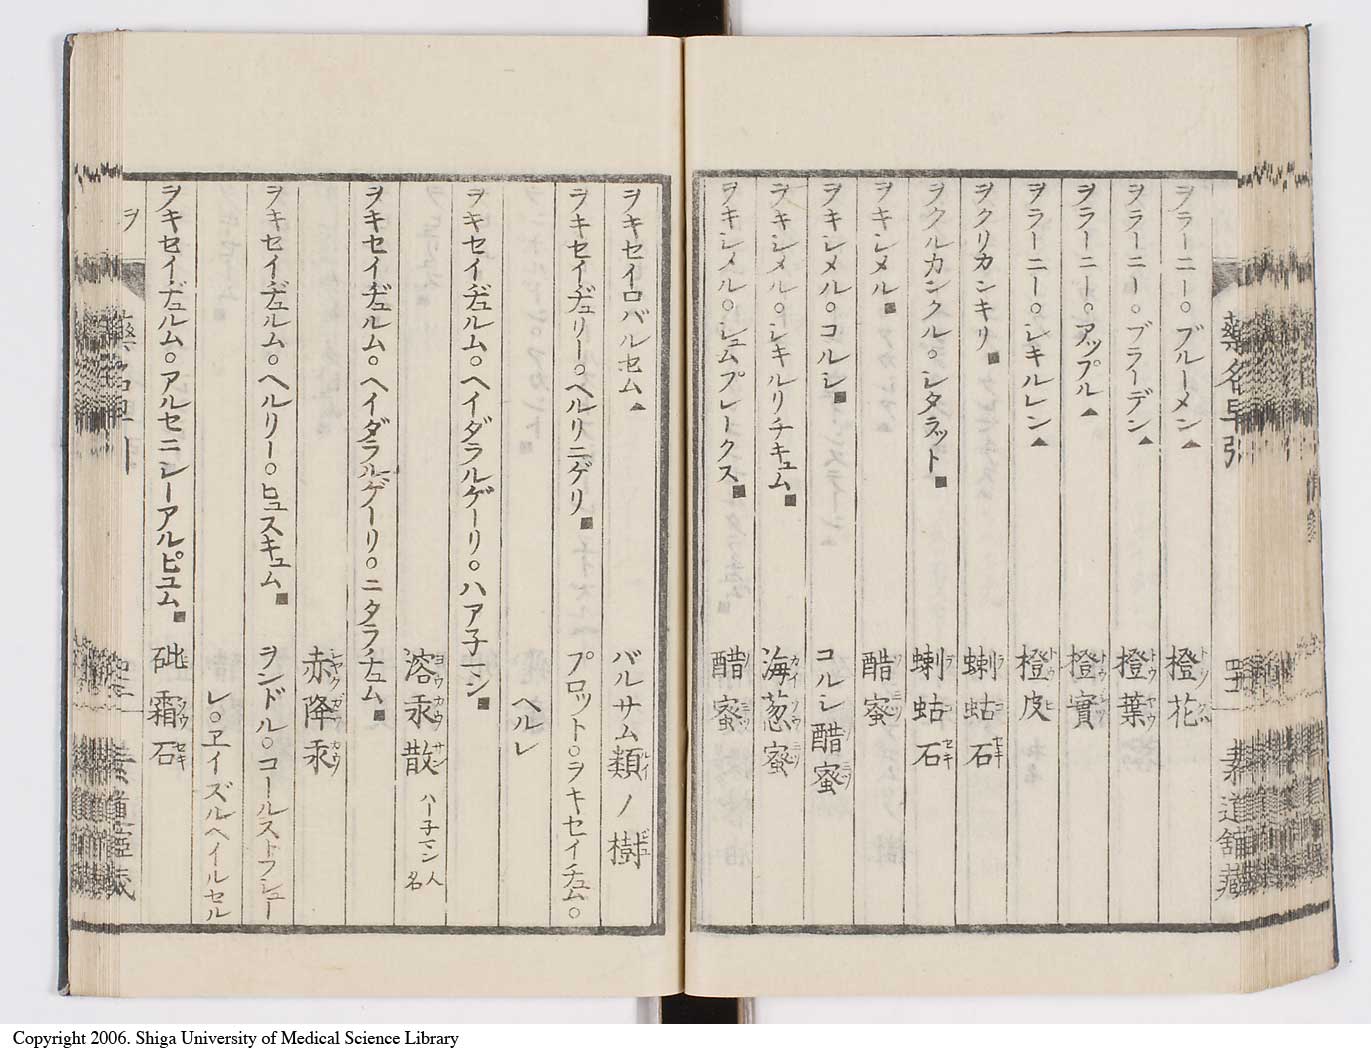 藥名早引
ヲラーニー。ブルーメン▲ 橙花
ヲラーニー。ブラーデン▲ 橙葉
ヲラーニー。アップル▲ 橙實
ヲラーニー。シキルレン▲ 橙皮
ヲクリカンキリ■ 蝲蛄石
ヲクルカンクル。シタラット■ 蝲蛄石
ヲキシメル■ 醋蜜
ヲキシメル。コルシ■ コルシ醋蜜
ヲキシメル。シキルリチキュム■ 海葱蜜
ヲキシメル。シュムプレークス■ 醋蜜
ヲキセイロバルセム▲ バルサム類ノ樹
ヲキセイヂュリー。ヘルリニゲリ■ プロット。ヲキセイチュム。
ヘルレ
ヲキセイヂュルム。ヘイダラルゲーリ。ハア子マン■
溶汞散 ハー子マン人名
ヲキセイヂュルム。ヘイダラルゲーリ。ニタラチュム■
赤降汞
ヲキセイヂュルム。ヘルリー。ヒュスキュム■ ヲンドル。コールストフシュー
レ。ヱイズルヘイルセル
ヲキセイヂュルム。アルセニシーアルピュム■ 砒霜石
ヲ
Copyright 2006. Shiga University of Medical Science Library